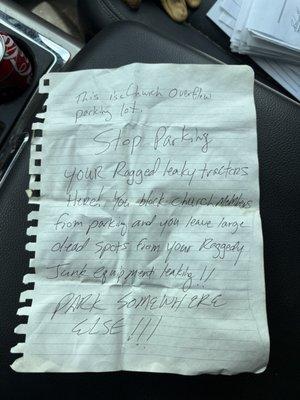 This is Church Overflow
parking lot.
Stop Parking
YOUR Ragged leaky tractors
Here! You block church Members
from parking and you leave large
dead spots from your Raggedy
Junk equipment leaking!!
PARK SOMEWHERE
ELSE!!!